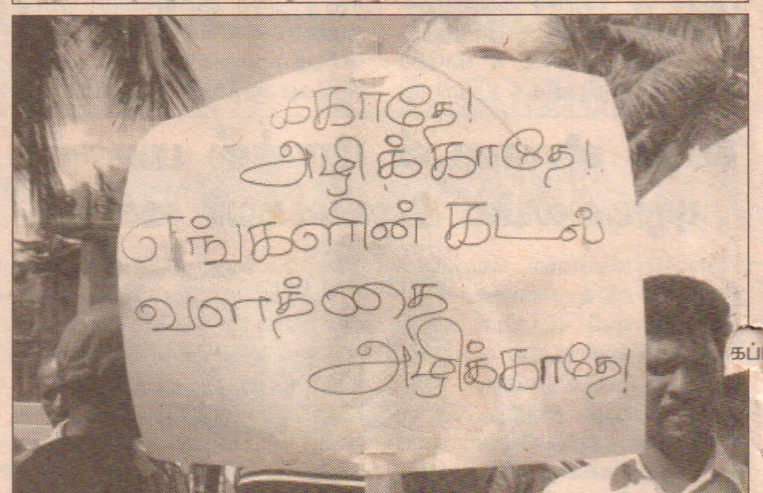 அழிக்காதே!
எங்களின் கடல்
வளத்தை
அழிக்காதே!